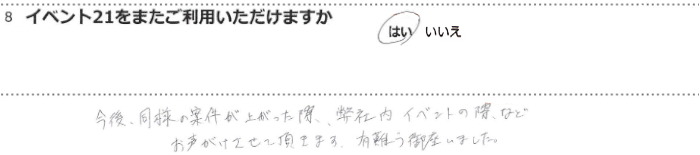 8 イベント21をまたご利用いただけますか
はい いいえ
今後、同様の案件が上がった際、、弊社内イベントの際、など
お声がけさせて頂きます、有難う御座いました。